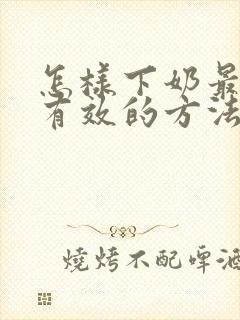 怎樣下奶最
有效的方法
燒烤不配啤酒